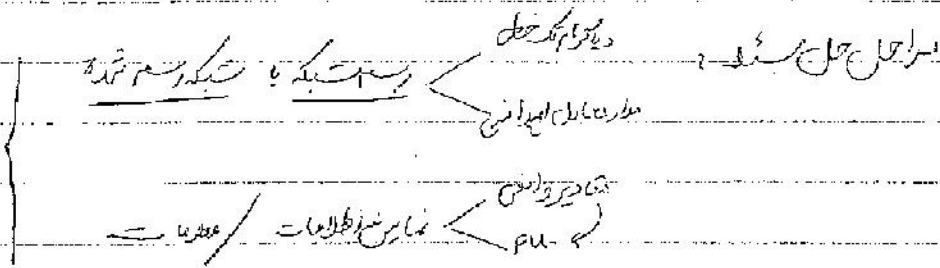 مراحل حل مسئله:
دیاگرام تک خطی
رسم شبکه یا شبکه رسم شده
مدار معادل امپدانسی
مقادیر واقعی
نمایش اطلاعات /
P.U